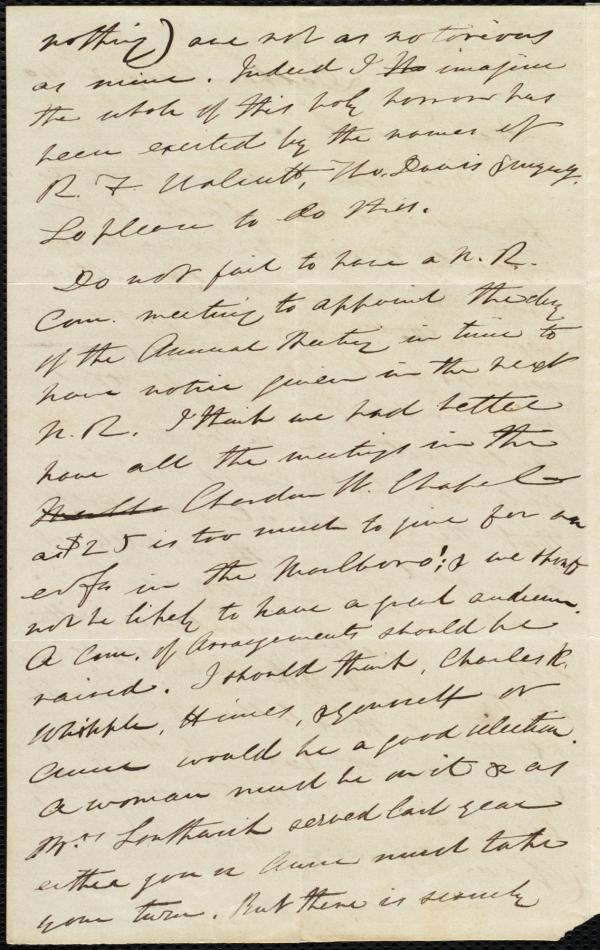 nothing) are not as notorious
as mine. Indeed I imagine
the whole of this holy horror has
been excited by the names of
R. F. Walcutt, Tho. Davis & myself.
So please to do this.
Do not fail to have a N. R.
Com. meeting to appoint the day
of the Annual Meeting in time to
have notice given in the next
N. R. I think we had better
have all the meetings in the
Chardon St. Chapel
as $25 is too much to give for an
eve'g in the Marlboro'; & we should
not be likely to have a great audience.
A Com. of Arrangements should be
raised. I should think, Charles K.
Whipple, Himes, & yourself or
Anne would be a good selection.
A woman must be on it & as
Mrs Southwick served last year
either you or Anne must take
your turn. But there is scarcely